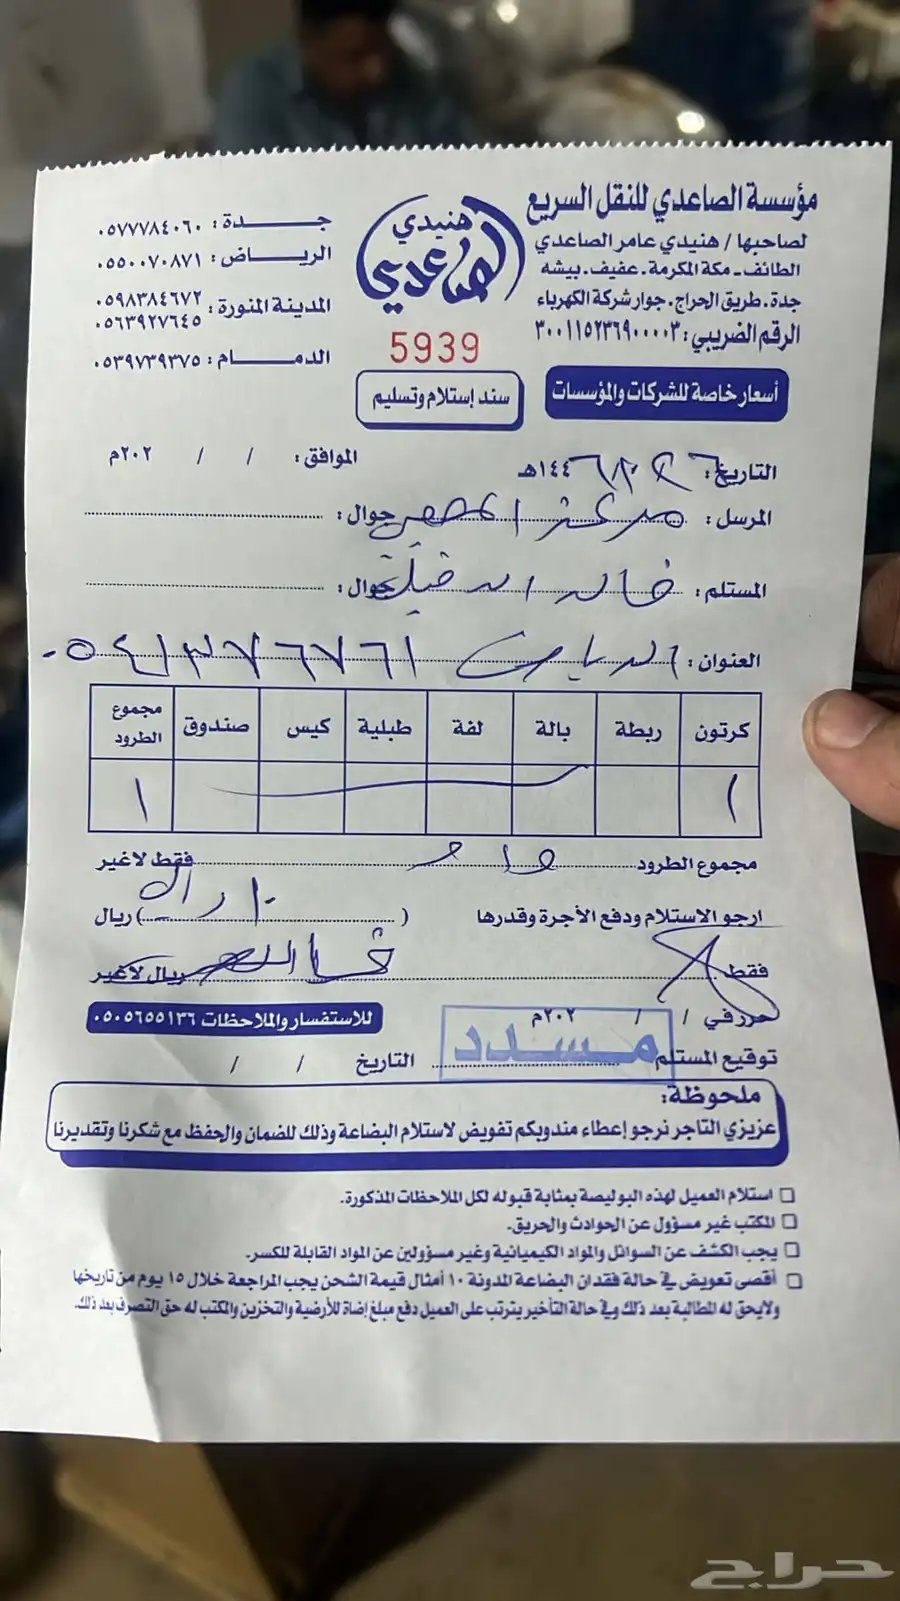 مؤسسة الصاعدي للنقل السريع
لصاحبها / هنيدي عامر الصاعدي
الطائف - مكة المكرمة . عفيف . بيشه
جدة . طريق الحراج . جوار شركة الكهرباء
الرقم الضريبي : ٣٠٠١١٥٢٣٦٩٠٠٠٠٣
أسعار خاصة للشركات والمؤسسات
هنيدي
الصاعدي
5939
سند إستلام وتسليم
جدة : ٠٥٧٧٧٨٤٠٦٠
الرياض : ٠٥٥٠٠٧٠٨٧١
المدينة المنورة : ٠٥٩٨٣٨٤٦٧٢
٠٥٦٣٩٢٧٦٤٥
الدمام : ٠٥٣٩٧٣٩٣٧٥
التاريخ : ١٤٤٦هـ الموافق : / / ٢٠٢م
المرسل : مركز جوال :
المستلم : خالد جوال :
العنوان : الرياض ٠٥٤١٣٧٦٧٦١
كرتون ربطة بالة لفة طبلية كيس صندوق مجموع الطرود
١ ١
مجموع الطرود واحد فقط لاغير
ارجو الاستلام ودفع الأجرة وقدرها ( ) ريال
فقط ريال لاغير
حرر في / / ٢٠٢م للاستفسار والملاحظات ٠٥٠٥٦٥٥١٣٦
توقيع المستلم التاريخ / /
مسدد
ملحوظة:
عزيزي التاجر نرجو إعطاء مندوبكم تفويض لاستلام البضاعة وذلك للضمان والحفظ مع شكرنا وتقديرنا
استلام العميل لهذه البوليصة بمثابة قبوله لكل الملاحظات المذكورة.
المكتب غير مسؤول عن الحوادث والحريق.
يجب الكشف عن السوائل والمواد الكيميائية وغير مسؤولين عن المواد القابلة للكسر.
أقصى تعويض في حالة فقدان البضاعة المدونة ١٠ أمثال قيمة الشحن يجب المراجعة خلال ١٥ يوم من تاريخها
ولايحق له المطالبة بعد ذلك وفي حالة التأخير يترتب على العميل دفع مبلغ إضاة للأرضية والتخزين والمكتب له حق التصرف بعد ذلك.
حراج